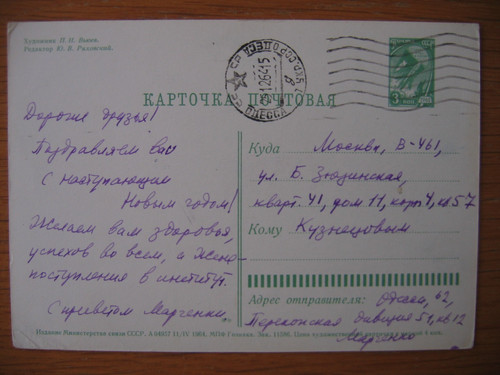 Художник П. И.
Редактор Ю. В.
КАРТОЧКА ПОЧТОВАЯ
ОДЕССА
Дорогие друзья!
Поздравляем вас
с наступающим
Новым годом!
Желаем вам здоровья,
успехов во всем, а Жене
поступления в институт.
С приветом Марченки.
Куда Москва, В-461,
ул. Б. Зюзинская,
кварт. 41, дом 11, корп 4, кв 57
Кому Кузнецовым
Адрес отправителя: Одесса, 62,
Перекопская дивизия 51, кв 12
Марченко
Издание Министерства связи СССР.